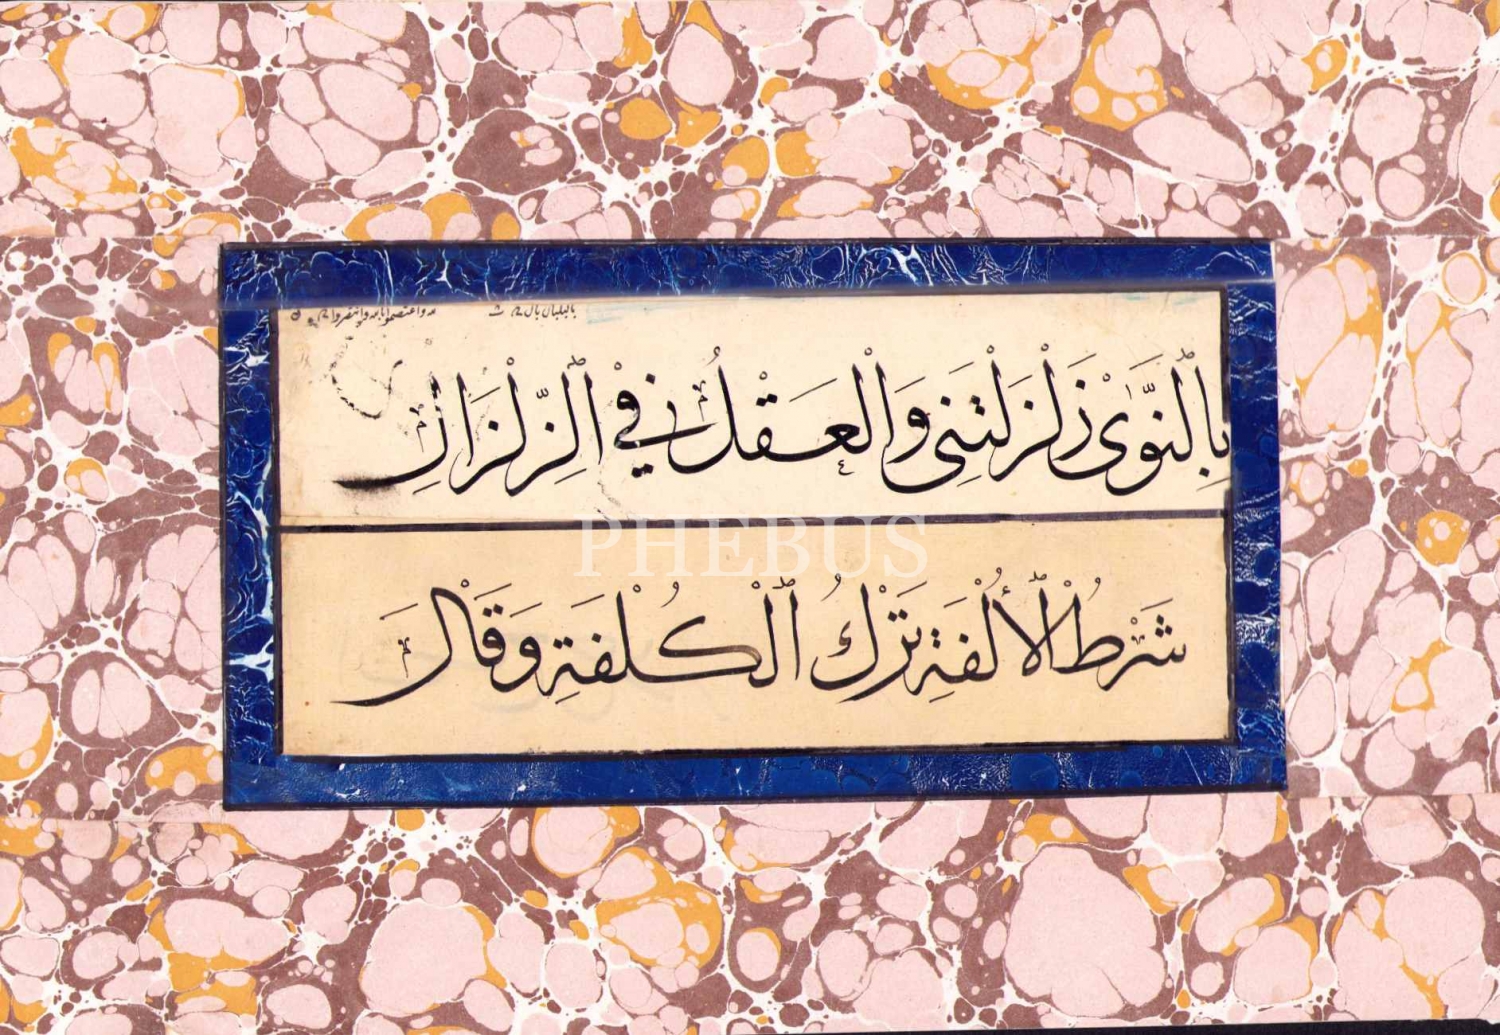 بِالنَّوَىٰ زَلْزَلْتَنِى وَالْعَقْلُ فِي الزِّلْزَالِ
PHEBUS
شَرْطُ الْأُلْفَةِ تَرْكُ الْكُلْفَةِ وَقَالَ